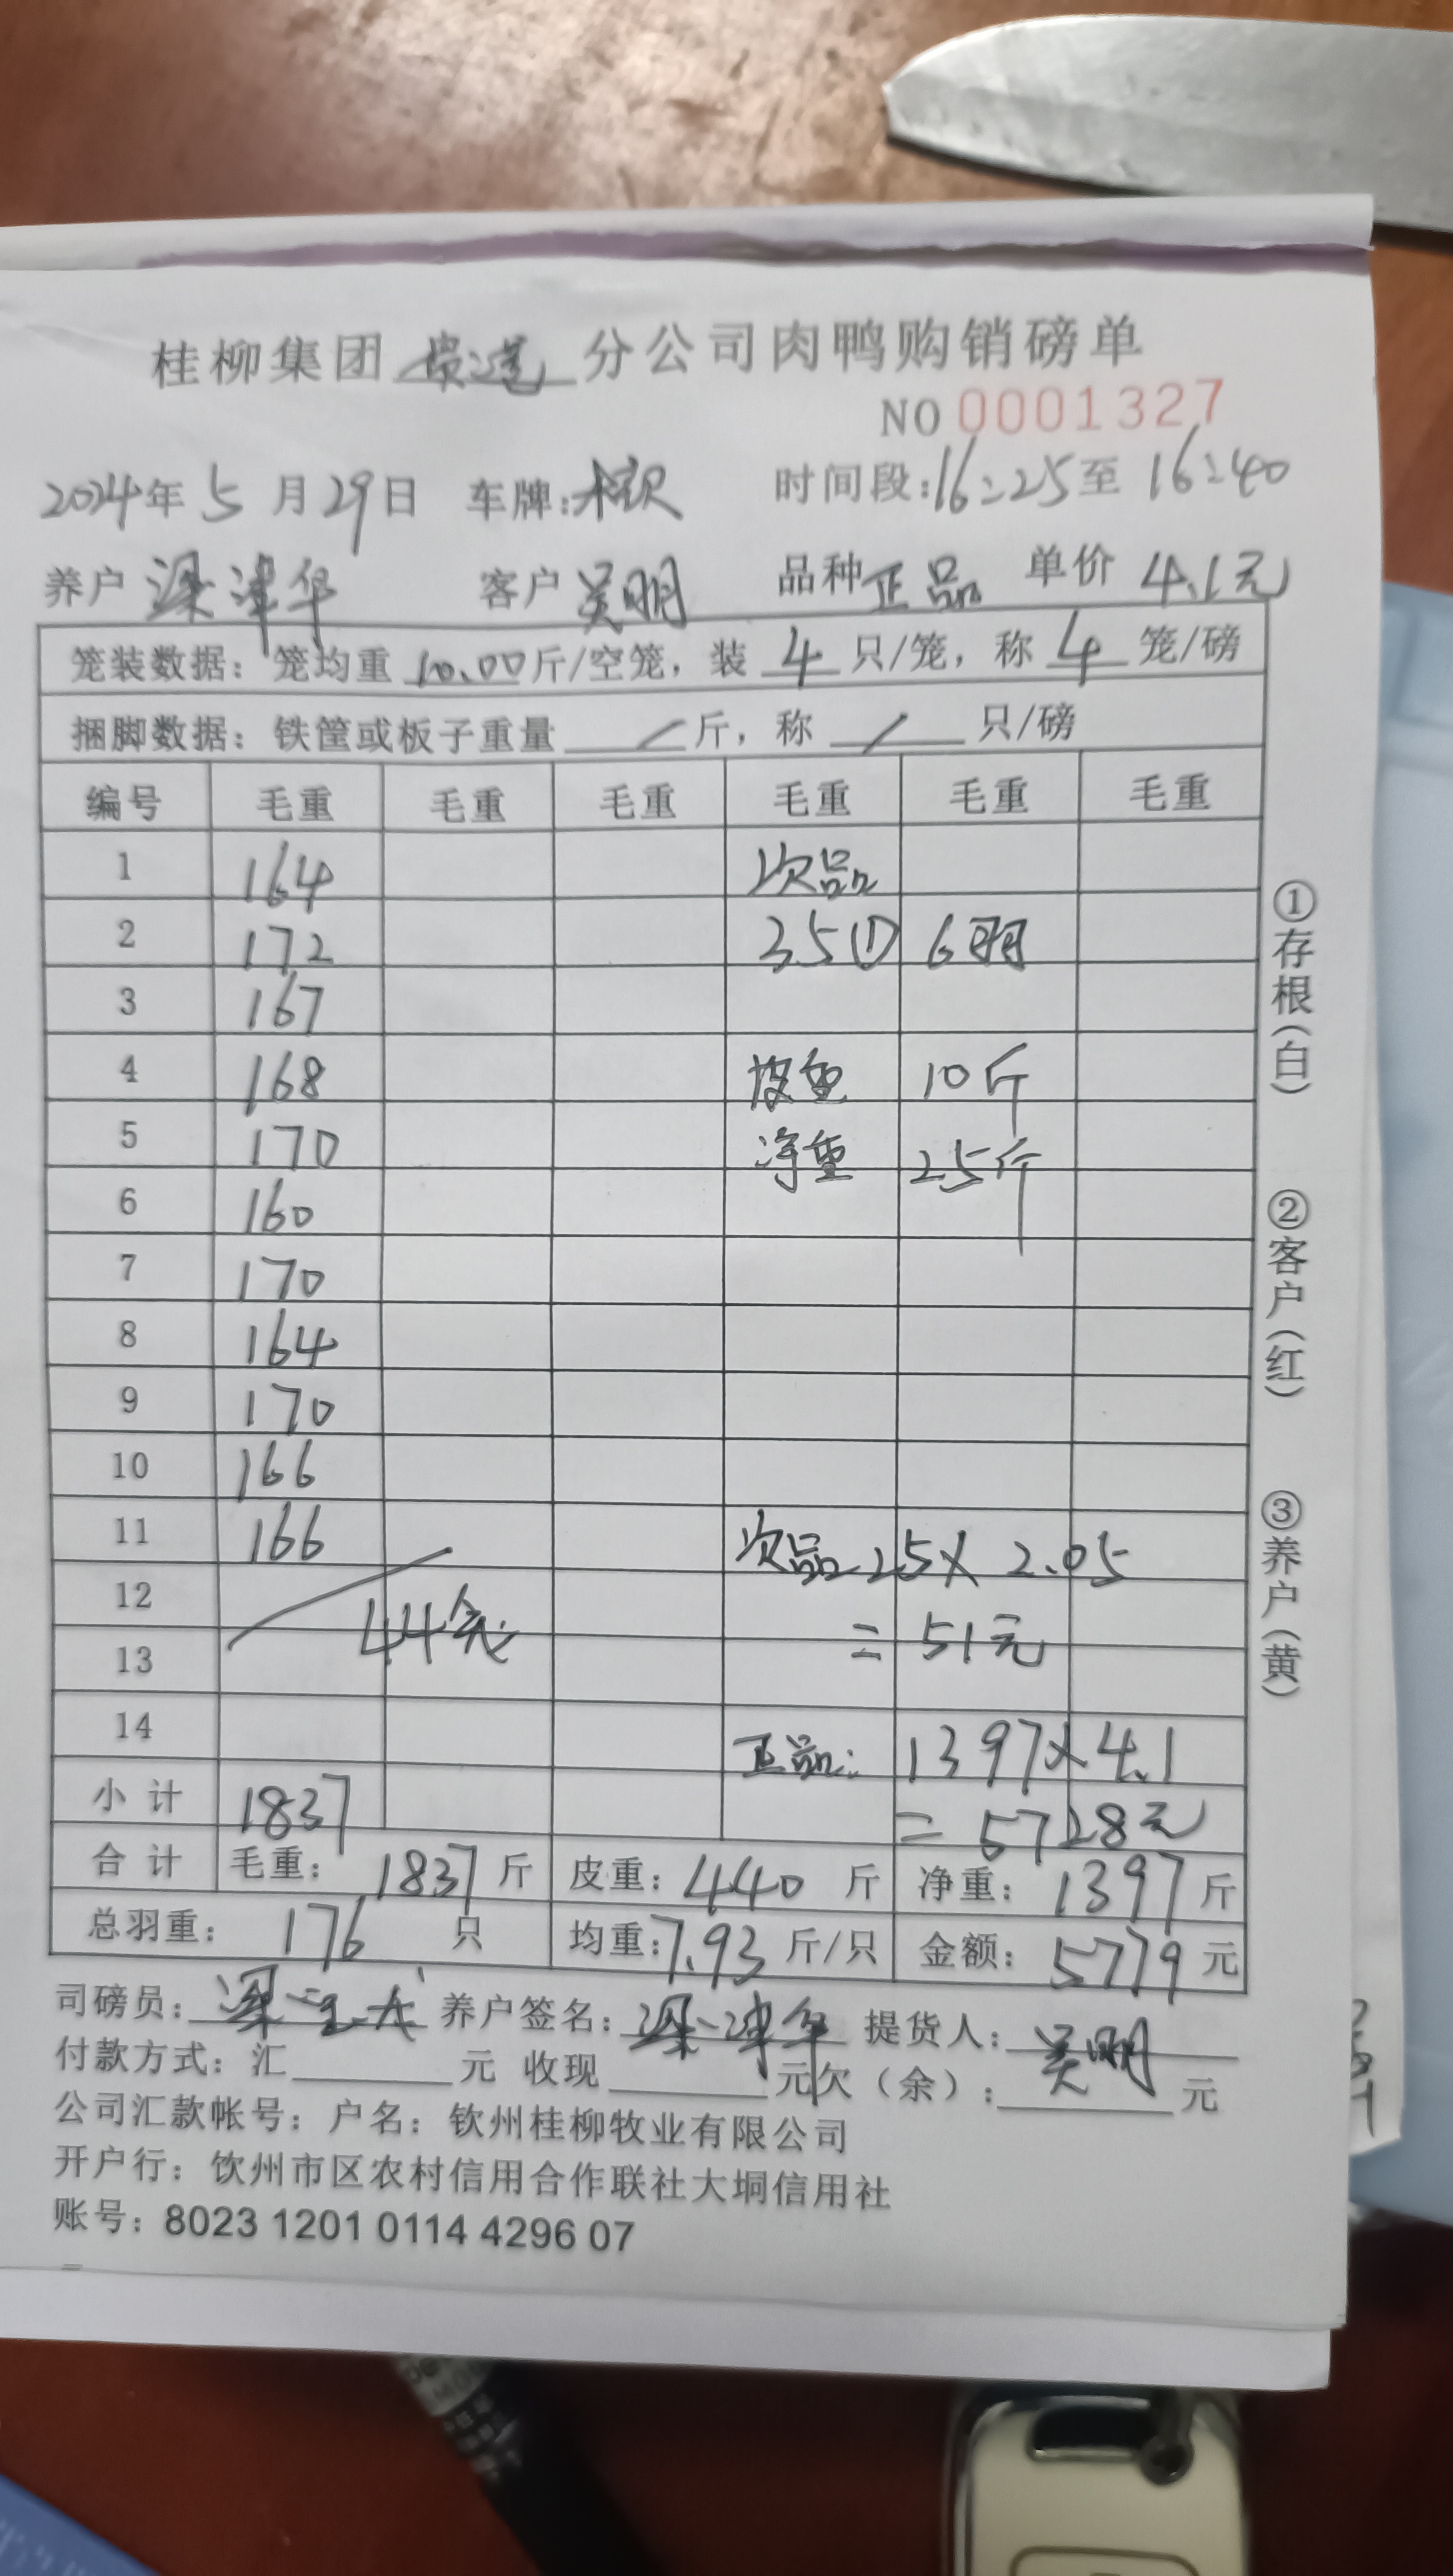 桂柳集团 贵港 分公司肉鸭购销磅单
NO 0001327
2024年 5 月 29日 车牌: 时间段:16:25至 16:40
养户 梁津华 客户 吴明 品种 正品 单价 4.1元
笼装数据: 笼均重 10.00 斤/空笼, 装 4 只/笼, 称 4 笼/磅
捆脚数据: 铁筐或板子重量 / 斤, 称 / 只/磅
编号 毛重 毛重 毛重 毛重 毛重 毛重
1 164 次品
2 172 35① 6羽
3 167
4 168 皮重 10斤
5 170 净重 25斤
6 160
7 170
8 164
9 170
10 166
11 166 次品 25×2.05
12 44笼 =51元
13
14 正品: 1397×4.1
小计 1837 =5728元
合计 毛重: 1837 斤 皮重: 440 斤 净重: 1397 斤
总羽重: 176 只 均重:7.93 斤/只 金额: 5779 元
司磅员: 养户签名: 梁津华 提货人: 吴明
付款方式: 汇 元 收现 元 欠(余): 元
公司汇款帐号: 户名: 钦州桂柳牧业有限公司
开户行: 饮州市区农村信用合作联社大垌信用社
账号: 8023 1201 0114 4296 07
①存根(白)
②客户(红)
③养户(黄)